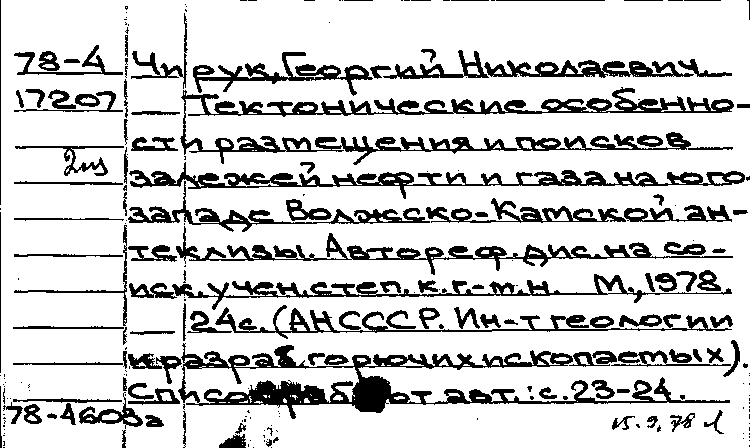 78-4 Чирук, Георгий Николаевич.
17207 Тектонические особенно-
сти размещения и поисков
залежей нефти и газа на юго-
западе Волжско-Камской ан-
теклизы. Автореф. дис. на со-
иск. учен. степ. к. г.-м. н. М., 1978.
24с. (АН СССР. Ин-т геологии
и разраб. горючих ископаемых).
Список работ авт.: с. 23-24.
78-4603а 15.9.78